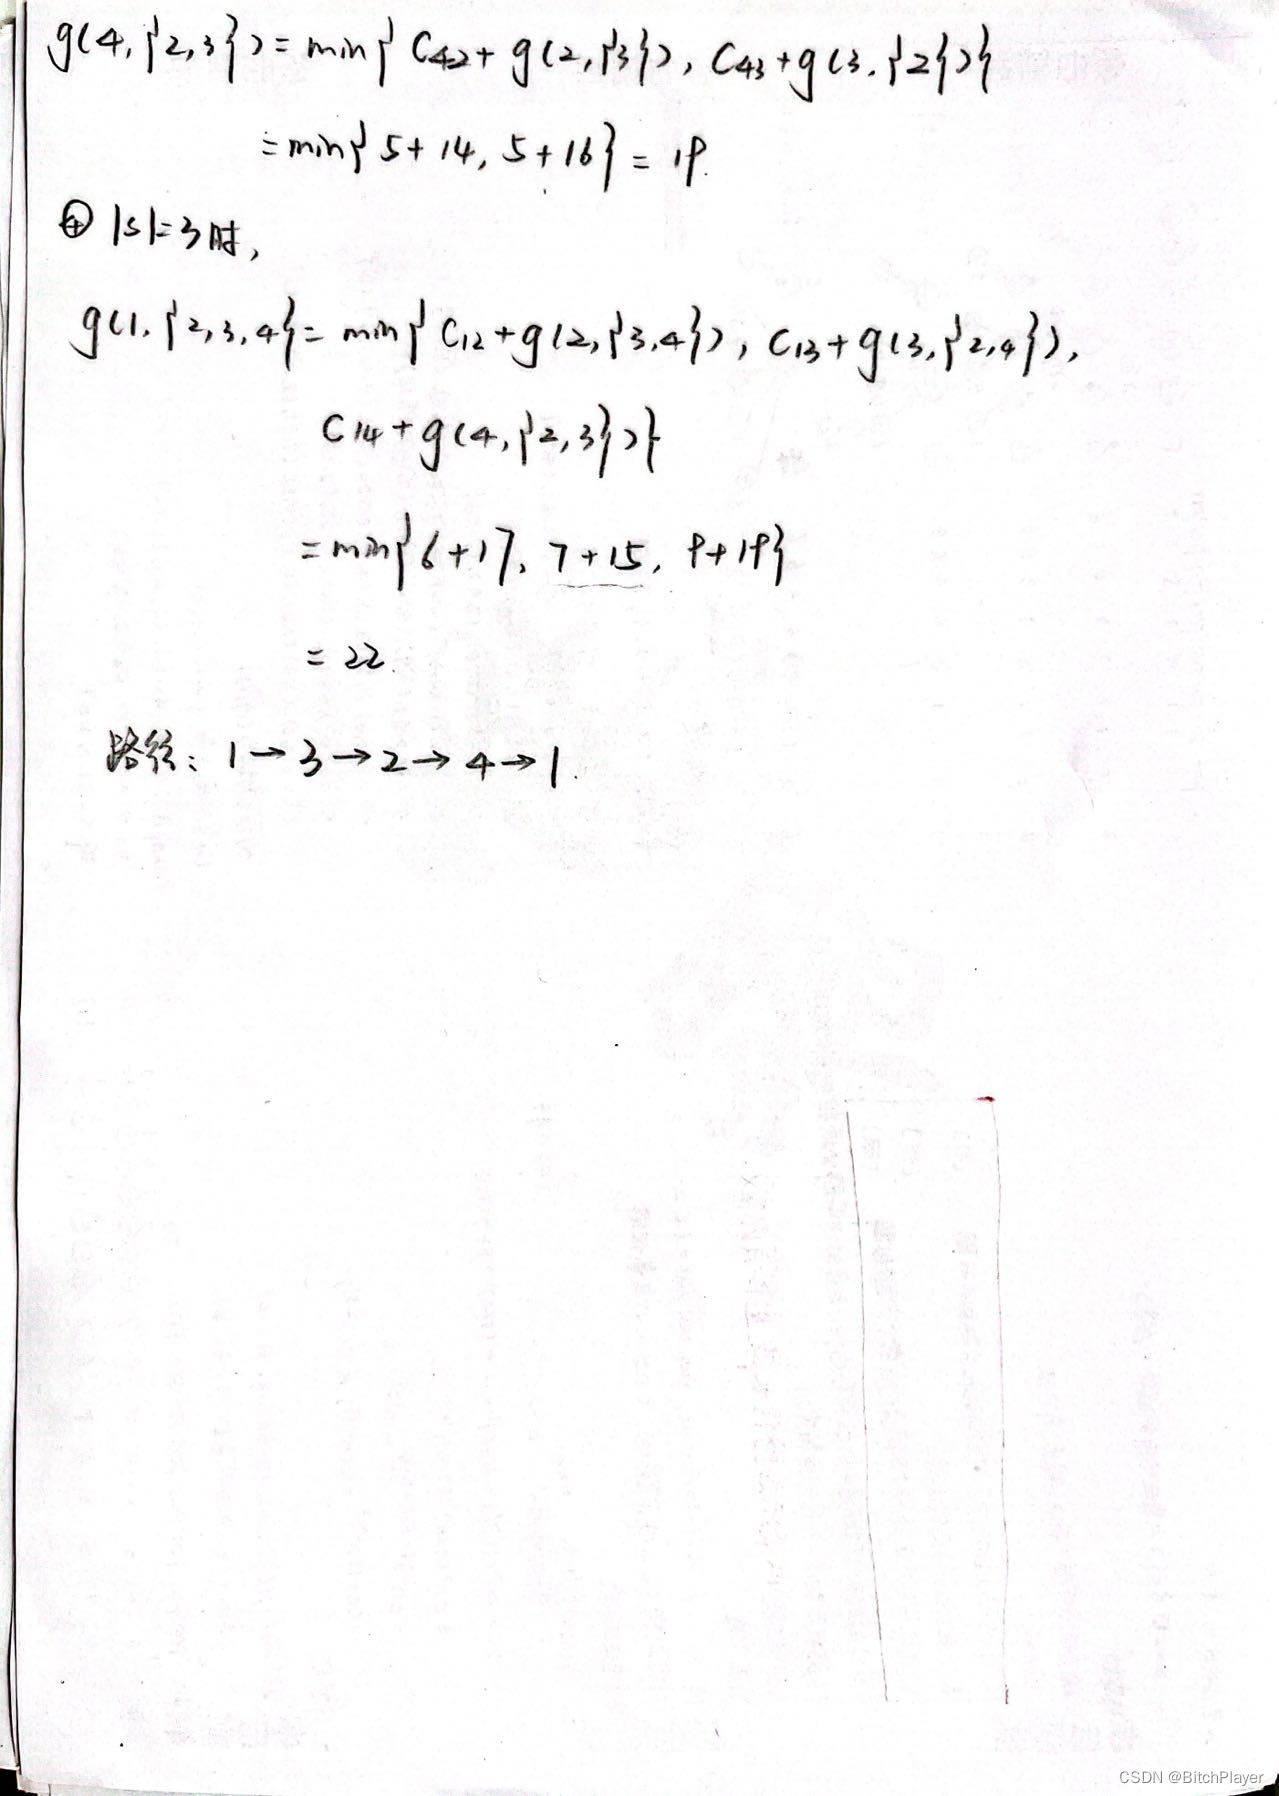 g(4,{2,3})=min{C42+g(2,{3}),C43+g(3,{2})}
=min{5+14,5+16}=19.
④ |S|=3时,
g(1,{2,3,4}=min{C12+g(2,{3,4}),C13+g(3,{2,4}),
C14+g(4,{2,3})}
=min{6+17,7+15,9+19}
=22.
路径:1→3→2→4→1.
CSDN @BitchPlayer